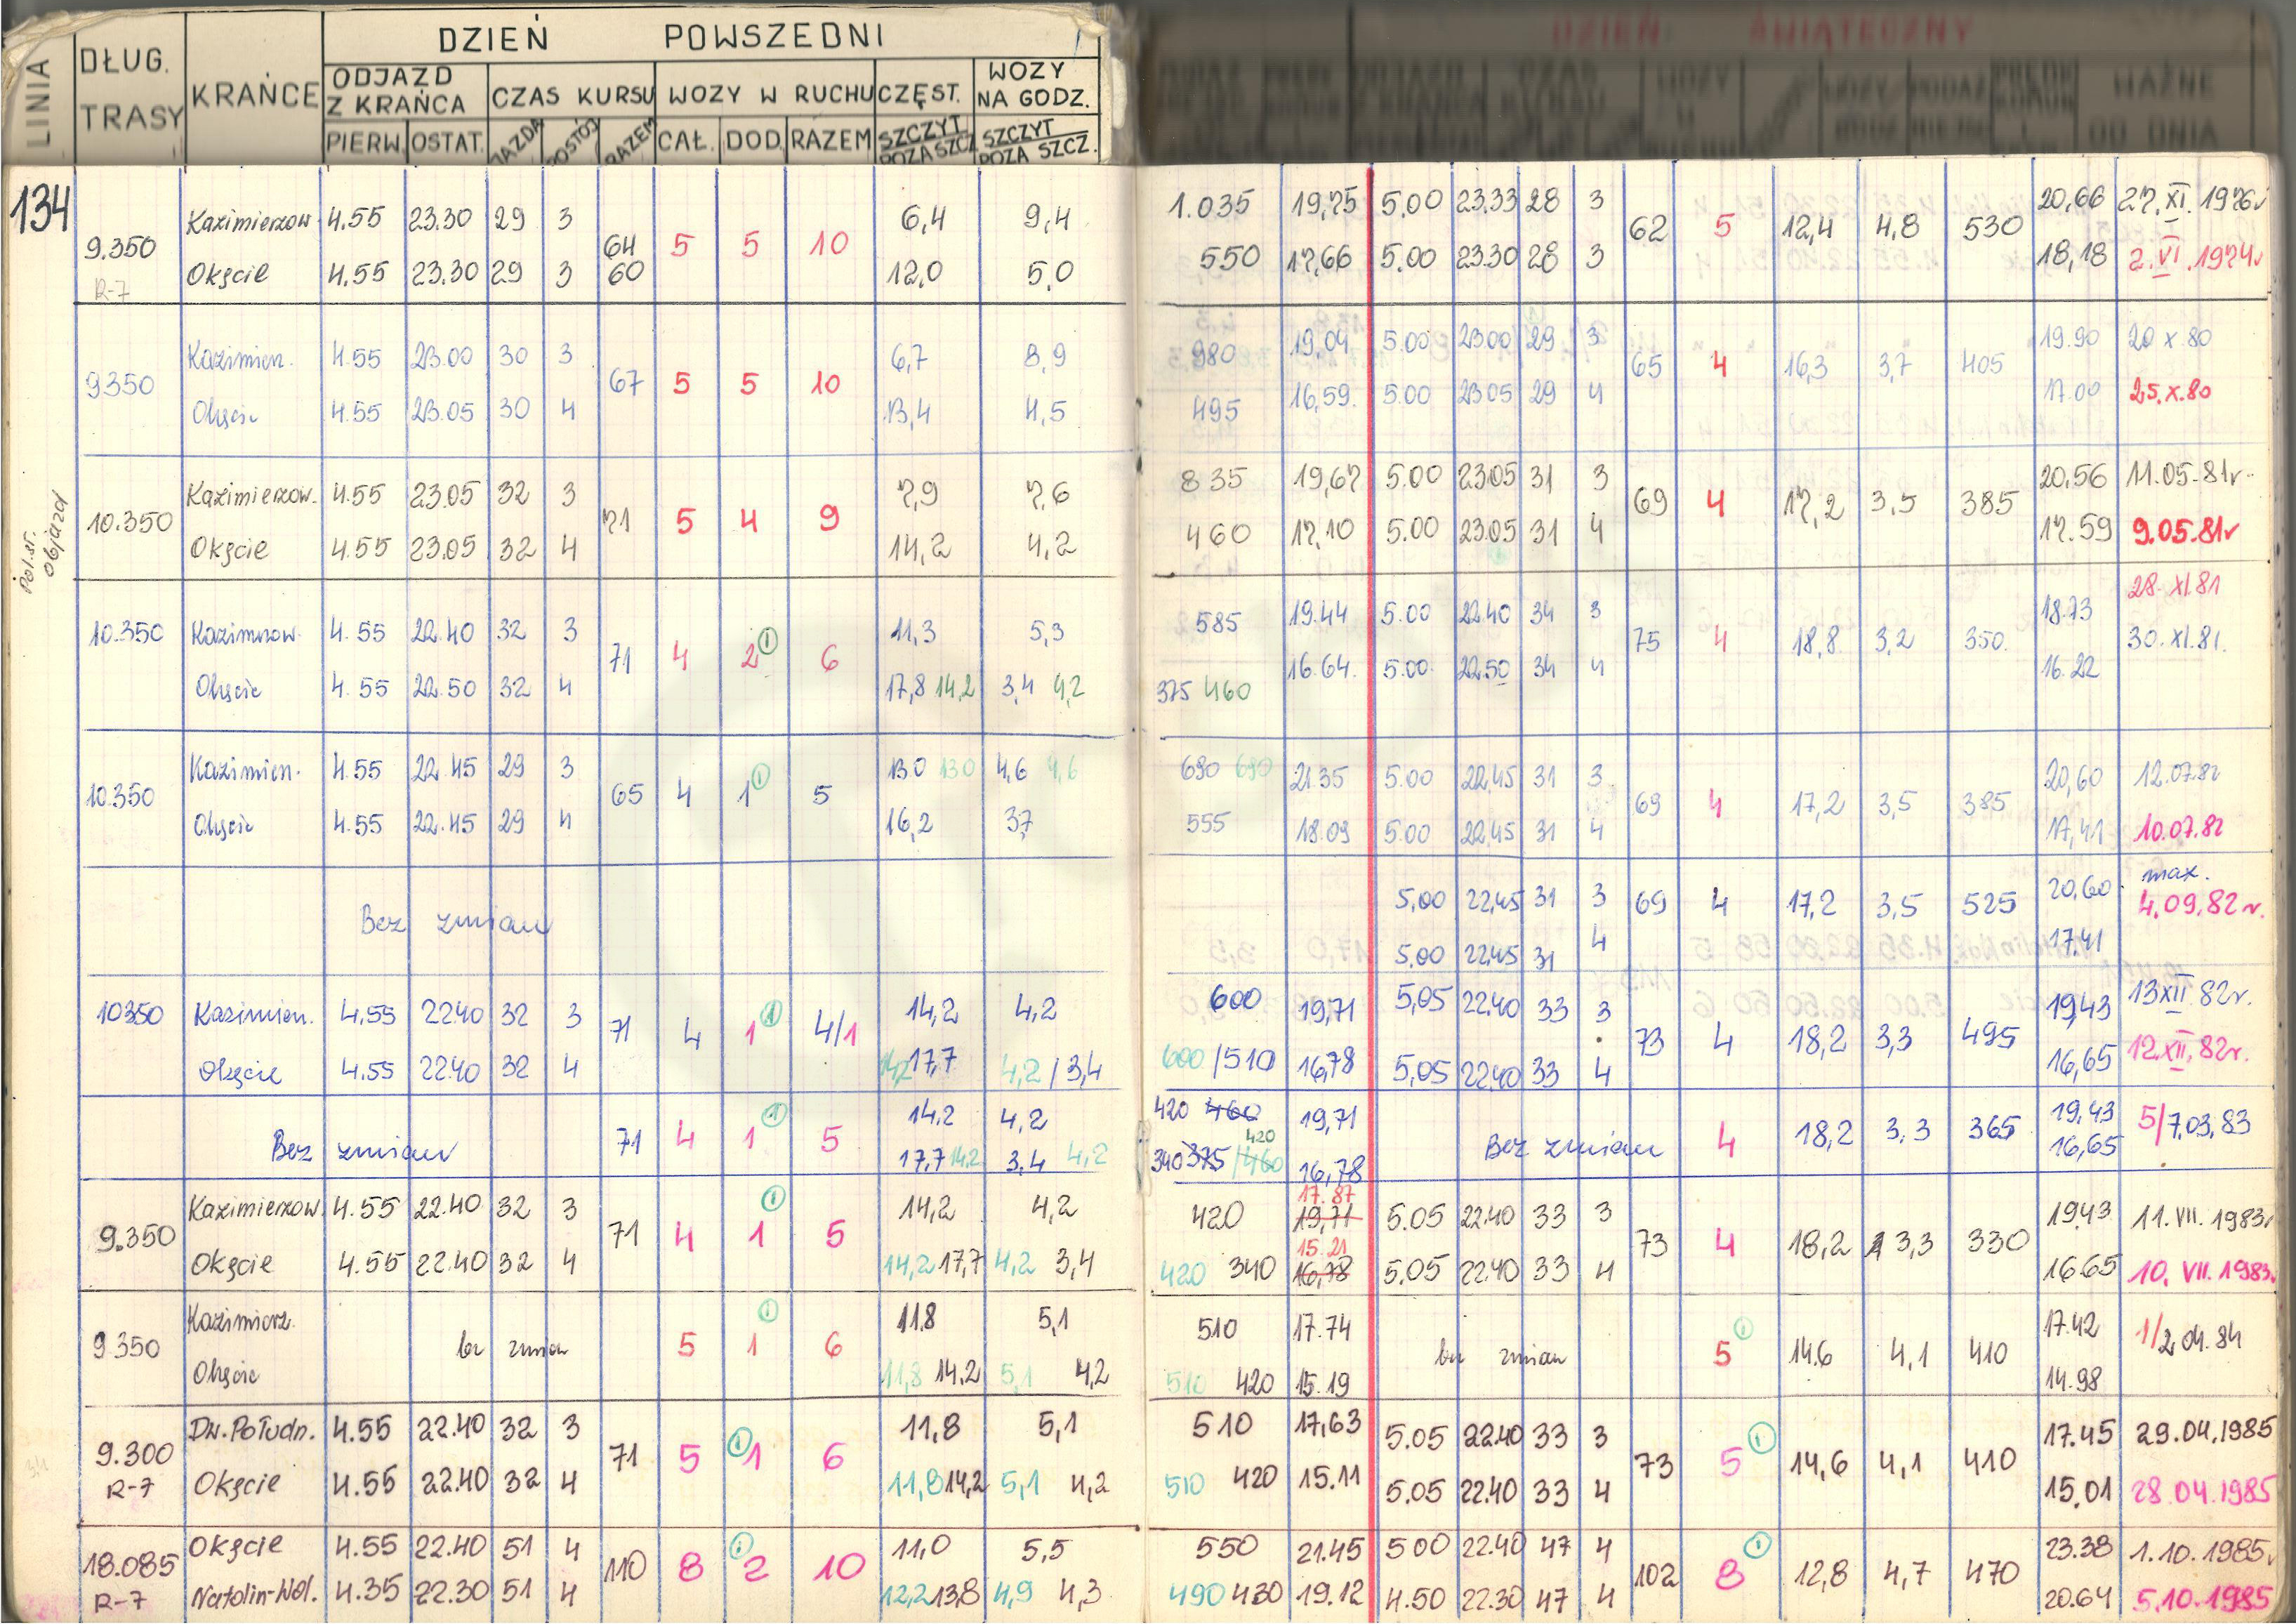 DZIEŃ POWSZEDNI
DZIEŃ ŚWIĄTECZNY
LINIA
DŁUG. TRASY
KRAŃCE
ODJAZD Z KRAŃCA
CZAS KURSU
WOZY W RUCHU
CZĘST.
WOZY NA GODZ.
PIERW. OSTAT. JAZDA POSTÓJ RAZEM CAŁ. DOD. RAZEM SZCZYT POZA SZCZ. SZCZYT POZA SZCZ.
WAŻNE OD DNIA
134
Kazimierzow 4.55 23.30 29 3 6,4 9,4 1.035 19,75 5.00 23.33 28 3 20,66 27.XI.1976r
9.350 64 5 5 10 62 5 12,4 4,8 530
Okęcie 4.55 23.30 29 3 60 12,0 5,0 550 17,66 5.00 23.30 28 3 18,18 2.VI.1974r
R-7
Kazimien. 4.55 23.00 30 3 6,7 8,9 980 19,04 5.00 23.00 29 3 19.90 20 X 80
9350 67 5 5 10 65 4 16,3 3,7 405
Okęcie 4.55 23.05 30 4 13,4 4,5 495 16,59. 5.00 23.05 29 4 17.00 25.X.80
Pol.st. objazd
Kazimierzow. 4.55 23.05 32 3 7,9 7,6 835 19,67 5.00 23.05 31 3 20,56 11.05.81r.
10.350 71 5 4 9 69 4 17,2 3,5 385
Okęcie 4.55 23.05 32 4 14,2 4,2 460 17,10 5.00 23.05 31 4 17.59 9.05.81r
28.XI.81
10.350 Kazimrzow. 4.55 22.40 32 3 11,3 5,3 585 19.44 5.00 22.40 34 3 18.73
71 4 2① 6 75 4 18,8 3,2 350. 30.XI.81.
Okęcie 4.55 22.50 32 4 17,8 14,2 3,4 4,2 375 460 16.64. 5.00. 22.50 34 4 16.22
Kazimien. 4.55 22.45 29 3 13.0 13.0 4,6 4,6 690 690 21.35 5.00 22,45 31 3 20,60 12.07.82
10.350 65 4 1① 5 69 4 17,2 3,5 385
Okęcie 4.55 22.45 29 4 16,2 3,7 555 18.09 5.00 22,45 31 4 17,41 10.07.82
max.
Bez zmian 5,00 22,45 31 3 69 4 17,2 3,5 525 20,60 4.09.82r.
5,00 22,45 31 4 17.41
10350 Kazimien. 4,55 22.40 32 3 14,2 4,2 600 19,71 5,05 22.40 33 3 19,43 13XII 82r.
71 4 1① 4/1 73 4 18,2 3,3 495
Okęcie 4.55 22.40 32 4 14,2 17,7 4,2 / 3,4 600 /510 16,78 5,05 22.40 33 4 16,65 12.XII.82r.
14.2 4,2 420 460 19,71 19,43
Bez zmian 71 4 1① 5 Bez zmian 4 18,2 3,3 365 5/7.03.83
17,7 14,2 3,4 4,2 340 375 / 460 420 16,78 16,65
Kazimierzow. 4.55 22.40 32 3 14,2 4,2 420 17.87 19,71 5.05 22.40 33 3 19.43 11.VII.1983r
9.350 71 4 1① 5 73 4 18,2 3,3 330
Okęcie 4.55 22.40 32 4 14,2 17,7 4,2 3,4 420 340 15.21 16,78 5,05 22.40 33 4 16.65 10.VII.1983
Kazimierz. 11.8 5,1 510 17.74 17.42
9.350 bez zmian 5 1① 6 bez zmian 5① 14.6 4,1 410 1/2.04.84
Okęcie 11,8 14.2 5,1 4,2 510 420 15.19 14.98
Dw.Połudn. 4.55 22.40 32 3 11,8 5,1 510 17,63 5.05 22.40 33 3 17.45 29.04.1985
9.300 71 5 ①1 6 73 5① 14,6 4,1 410
R-7 Okęcie 4.55 22.40 32 4 11,8 14,2 5,1 4,2 510 420 15.11 5.05 22.40 33 4 15,01 28.04.1985
Okęcie 4.55 22.40 51 4 11,0 5,5 550 21.45 5.00 22.40 47 4 23.38 1.10.1985r
18.085 110 8 ①2 10 102 8① 12,8 4,7 470
R-7 Natolin-Wol. 4.35 22.30 51 4 12,2 13,8 4,9 4,3 490 430 19.12 4.50 22.30 47 4 20.64 5.10.1985